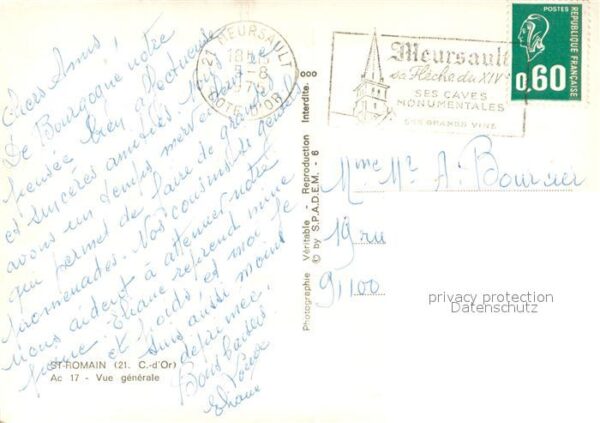 Chers Amis!
De Bourgogne notre
pensée bien affectueuse
et sincères amitiés. Nous
avons un temps merveilleux
qui permet de faire de grandes
promenades. Nos cousins si gentils
nous aident à atténuer notre
peine. Eliane reprend mine
et poids et moi je
suis aussi moins
déprimée.
Bons baisers
Eliane
ST-ROMAIN (21. C.-d'Or)
Ac 17 - Vue générale
21 MEURSAULT
18 H
-8
COTE D'OR
Meursault
sa Flèche du XIVe
SES CAVES
MONUMENTALES
SES GRANDS VINS
POSTES
REPUBLIQUE FRANÇAISE
0,60
Photographie Véritable - Reproduction Interdite.
© by S.P.A.D.E.M. - 6
Mme Mr A. Boursier
19 rue
91100
privacy protection
Datenschutz